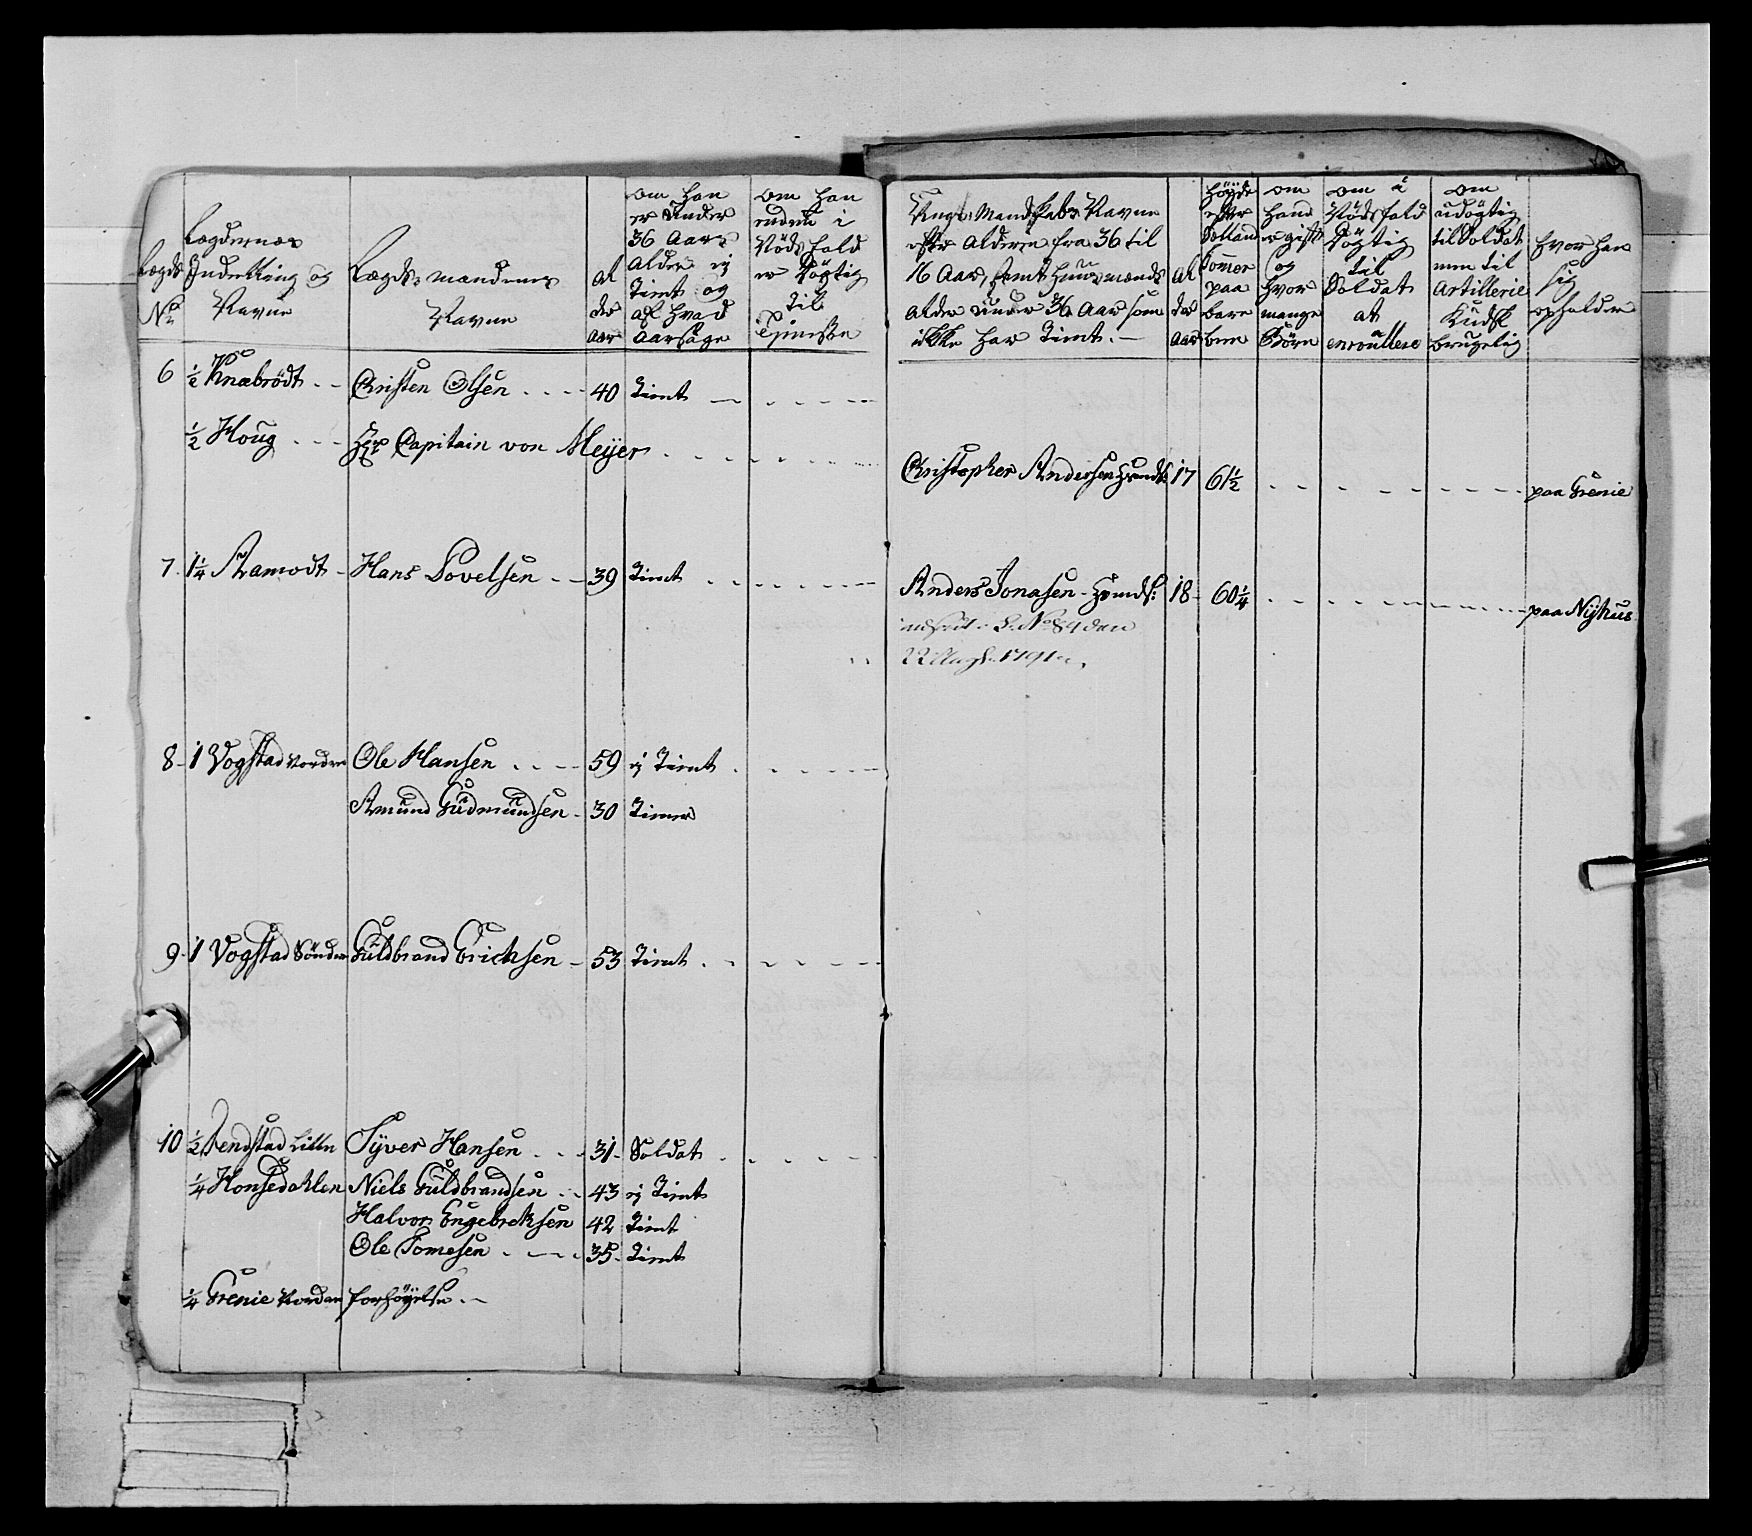 Lægds No
Lægdernes Inddeeling og Navne
Lægds-mændenes Navne
al der aar
om han er under 36 aars alder ej tient og af hvad aarsage
om han endnu i Nöds fald er dögtig til Tjeneste
Unge Mandskabs Navne efter alderen fra 36 til 16 Aar, samt huusmænds alder under 36 Aar som ikke har tient.
al der aar
höyde efter Solland tommer paa bare been
om hand er gift og hvor mange Börn
om i Nödsfald dögtig til Soldat at enroullere
om udögtig til Soldat men til Artillerie Kudsk brugelig
hvor han sig opholder
6 ½ Knabrödt - - Christen Olsen - - - - 40 tient
½ Houg - - - Hr Capitain von Meyer
Christopher Andersen Huusmds: 17 61½ paa Grenie
7. 1¼ Aamodt - Hans Povelsen - - 39 tient
Anders Jonasen - Huusmds: 18 - 60¼ paa Nyhus
No 84 den
22 1791
8 - 1 Vogstad Nordre Ole Hansen - - - - 59 ej tient
Amund Gudmundsen - 30 tiener
9 - 1 Vogstad Söndre Guldbrand Erichsen - 53 tient
10 ½ Rendstad Litle Syver Hansen - - - 31 - Soldat
¼ Honsedahlen Niels Guldbrandsen - - 43 ej tient
Halvor Engebretsen 42 tient
Ole Tomesen - - - - 35 - tient
¼ Grenie Nordre forhöyelse